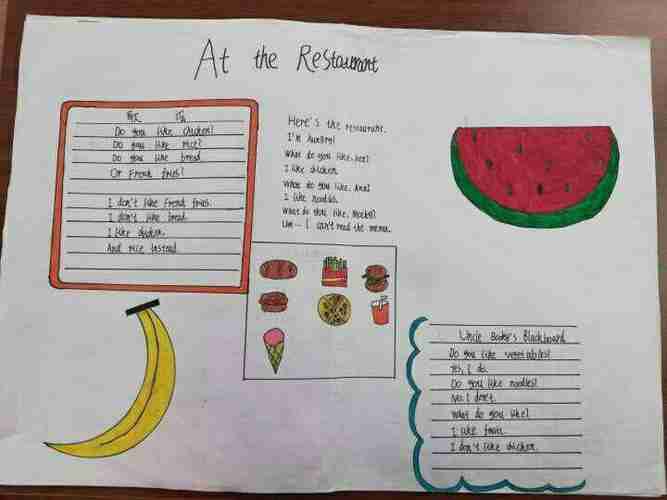 At the Restaurant
歌 谣
Do you like chicken?
Do you like rice?
Do you like bread
Or French fries?
I don't like French fries.
I don't like bread.
I like chicken.
And rice instead.
Here's the restaurant.
I'm hungry!
What do you like,
I like chicken
What do you like, Ana?
I like noodles.
What do you like, Mocky?
Um... I can't read the menu.
Uncle Booky's Blackboard
Do you like vegetables?
Yes, I do.
Do you like noodles?
No. I don't.
What do you like?
I like fruit.
I don't like chicken.